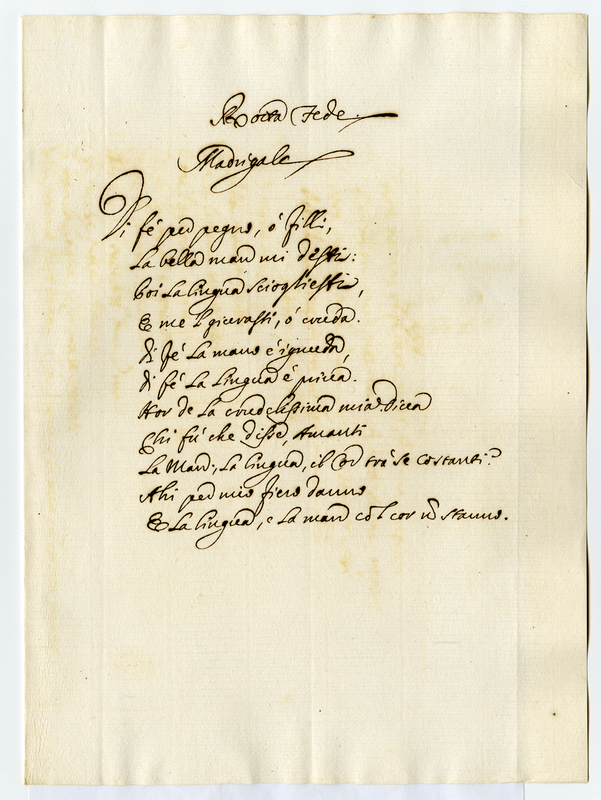 Rotta Fede
Madrigale
Di fé per pegno, ó Filli,
La bella man mi desti:
Poi La lingua sciogliesti,
E me 'l giurasti, ó cruda.
di Fé La mano é ignuda,
di fé La Lingua é priva.
Hor de La crudelissima mia Diva
Chi fú che disse, Amanti
La Man, La lingua, il Cor trá se costanti?
Ahi per mio fiero danno
E La lingua, e La man cól cor nõ stanno.